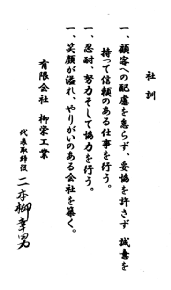 社訓
一、顧客への配慮を怠らず、妥協を許さず 誠意を
持って信頼のある仕事を行う。
一、忍耐、努力そして協力を行う。
一、笑顔が溢れ、やりがいのある会社を築く。
有限会社 柳栄工業
代表取締役 二本柳幸男